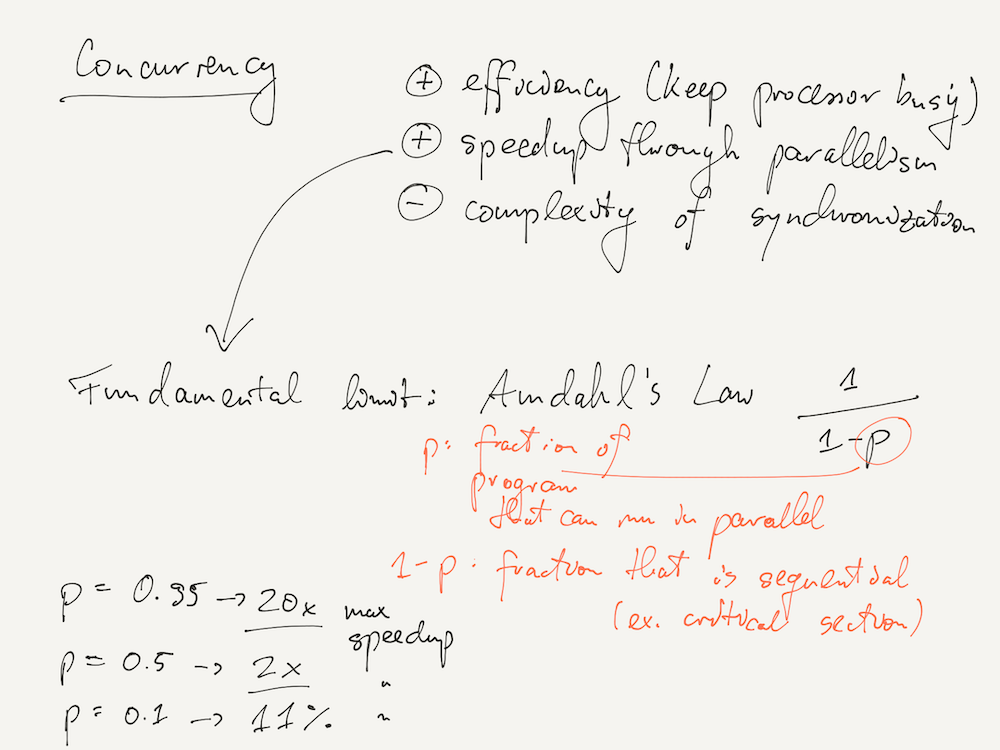 Concurrency
⊕ efficiency (keep processor busy)
⊕ speedup through parallelism
⊖ complexity of synchronization
Fundamental limit: Amdahl's Law 1
1-p
p: fraction of
program
that can run in parallel
1-p: fraction that is sequential
(ex. critical section)
p = 0.95 → 20x max
speedup
p = 0.5 → 2x "
p = 0.1 → 11% "